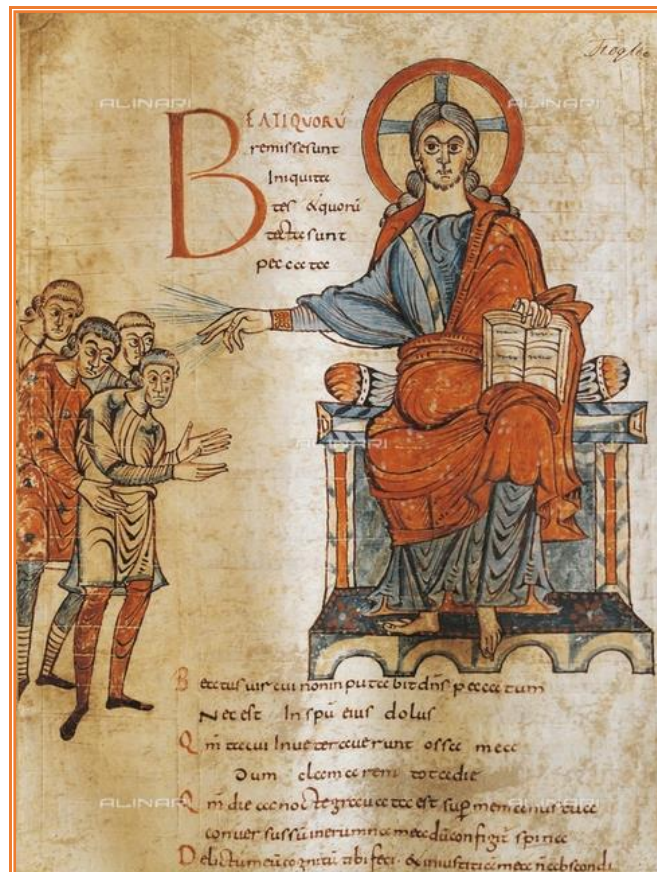 ALINARI ALINARI
BEATI QVORŪ
remisse sunt
Iniquita
tes & quorū
tecta sunt
peccata
ALINARI
Beatus uir cui non inputabit dn̄s peccatum
Nec est In spū eius dolus
Qm̄ tacui Inueterauerunt ossa mea
Dum clamarem tota die
ALINARI ALINARI
Qm̄ die ac nocte grauata est sup̄ me manus tua
conuersus sū in erumna mea dū configit spina
Delictum meū cognitū tibi feci · & iniustitiā meā n̄ abscondi